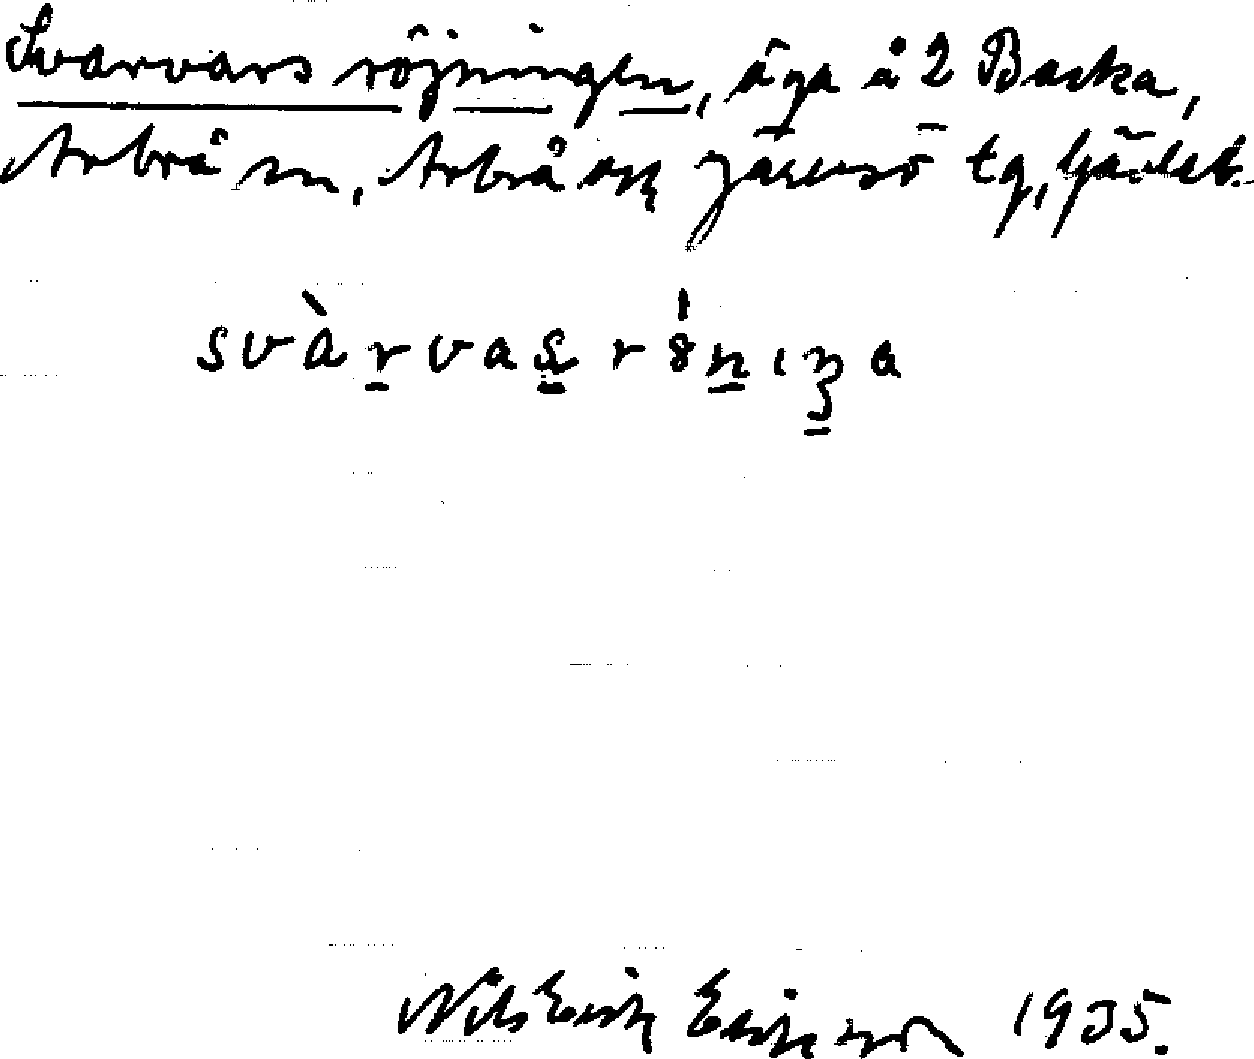 Svarvars röjningen, äga å 2 Backa,
Arbrå sn, Arbrå och Järvsö tg, Gävleb.
svàrvas róniŋa
Nils Erik Eriksson 1935.